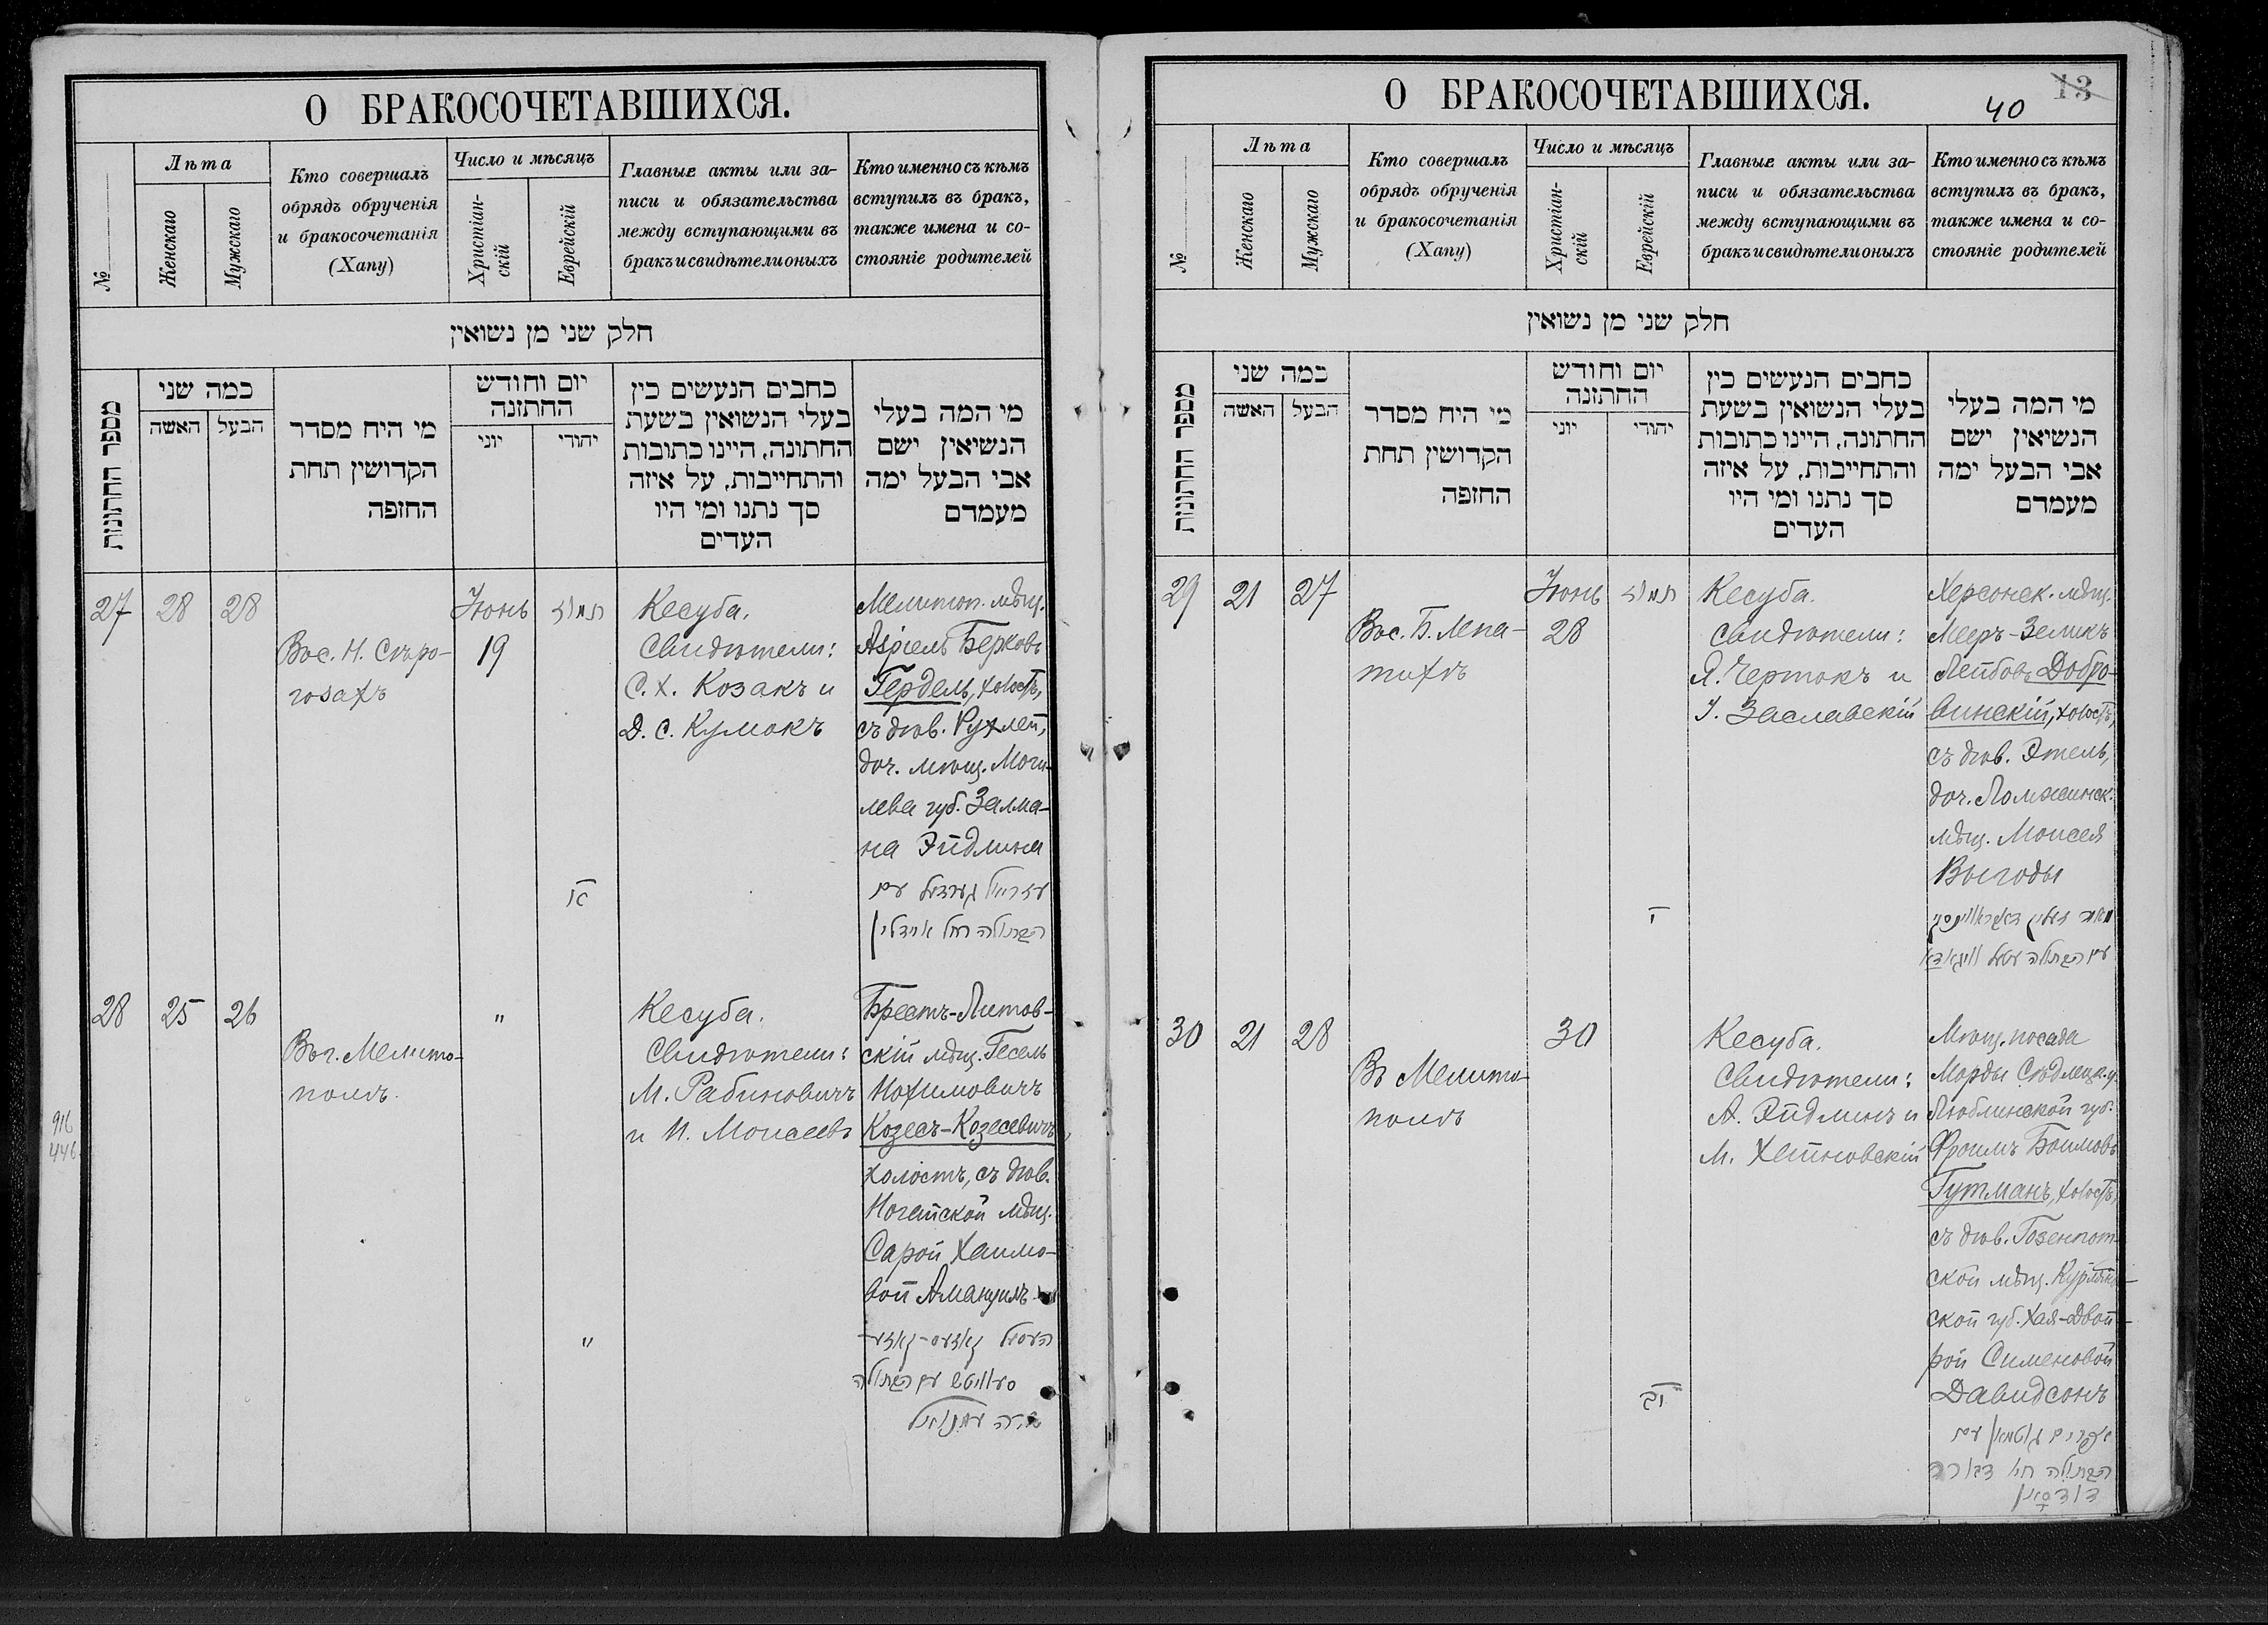 О БРАКОСОЧЕТАВШИХСЯ.
№
Лѣта
Женскаго
Мужскаго
Кто совершалъ
обрядъ обрученія
и бракосочетанія
(Хапу)
Число и мѣсяцъ
Христіан-
скій
Еврейскій
Главные акты или за-
писи и обязательства
между вступающими въ
бракъ и свидѣтели оныхъ
Кто именно съ кѣмъ
вступилъ въ бракъ,
также имена и со-
стояніе родителей
חלק שני מן נשואין
מספר החתונות
כמה שני
האשה
הבעל
מי היח מסדר
הקדושין תחת
החזפה
יום וחודש
החתזנה
יוני
יהודי
כחבים הנעשים כין
בעלי הנשואין בשעת
החתונה, היינו כתובות
והתחייבות, על איזה
סך נתנו ומי היו
העדים
מי המה בעלי
הנשיאין ישם
אבי הבעל ימה
מעמדם
27
28
28
Вос. Н. Сѣро-
гозахъ
Іюнь
19
תמוז
כא
Кесуба.
Свидѣтели:
С. Х. Козакъ и
Д. С. Кумокъ
Мелитоп. мѣщ.
Азріель Берковъ
Гердель, холостъ,
съ дѣв. Рухлей,
доч. мѣщ. Моги-
лева губ. Залма-
на Эйдлина
עזריאל גערדעל עם
הבתולה רחל איידלין
28
25
26
Въ г. Мелито-
полѣ.
"
"
Кесуба.
Свидѣтели:
М. Рабиновичъ
и И. Моисеевъ
Брестъ-Литов-
скій мѣщ. Гесель
Нохимовичъ
Козесъ-Козесевичъ,
холостъ, съ дѣв.
Ногайской мѣщ.
Сарой Хаимо-
вой Амануилъ
העסיל קאזעס-קאזע-
סעוויטש עם הבתולה
שרה עמנואל
916
446
О БРАКОСОЧЕТАВШИХСЯ.
13
40
№
Лѣта
Женскаго
Мужскаго
Кто совершалъ
обрядъ обрученія
и бракосочетанія
(Хапу)
Число и мѣсяцъ
Христіан-
скій
Еврейскій
Главные акты или за-
писи и обязательства
между вступающими въ
бракъ и свидѣтели оныхъ
Кто именно съ кѣмъ
вступилъ въ бракъ,
также имена и со-
стояніе родителей
חלק שני מן נשואין
מספר החתונות
כמה שני
האשה
הבעל
מי היח מסדר
הקדושין תחת
החזפה
יום וחודש
החתזנה
יוני
יהודי
כחבים הנעשים כין
בעלי הנשואין בשעת
החתונה, היינו כתובות
והתחייבות, על איזה
סך נתנו ומי היו
העדים
מי המה בעלי
הנשיאין ישם
אבי הבעל ימה
מעמדם
29
21
27
Вос. Б. Лепа-
тихѣ
Іюнь
28
תמוז
Кесуба.
Свидѣтели:
Я. Чертокъ и
І. Заславскій
Херсонск. мѣщ.
Мееръ-Зеликъ
Лейбовъ Добро-
винскій, холостъ,
съ дѣв. Этель,
доч. Ломжинск.
мѣщ. Моисея
Выгоды
מאיר זעליק דאבראווינסקי
עם הבתולה עטעל וויגאדא
30
21
28
Въ Мелито-
полѣ
30
יב
Кесуба.
Свидѣтели:
А. Эйдлинъ и
М. Хейновскій
Мѣщ. посада
Морды Сѣдлецк. у.
Люблинской губ.
Фроимъ Боимовъ
Гутманъ, холостъ,
съ дѣв. Газенпот-
ской мѣщ. Курлянд-
ской губ. Хая-Двой-
рой Сименовой
Давидсонъ
אפרים גוטמאן עם
הבתולה חיה דבורה
דודסאן